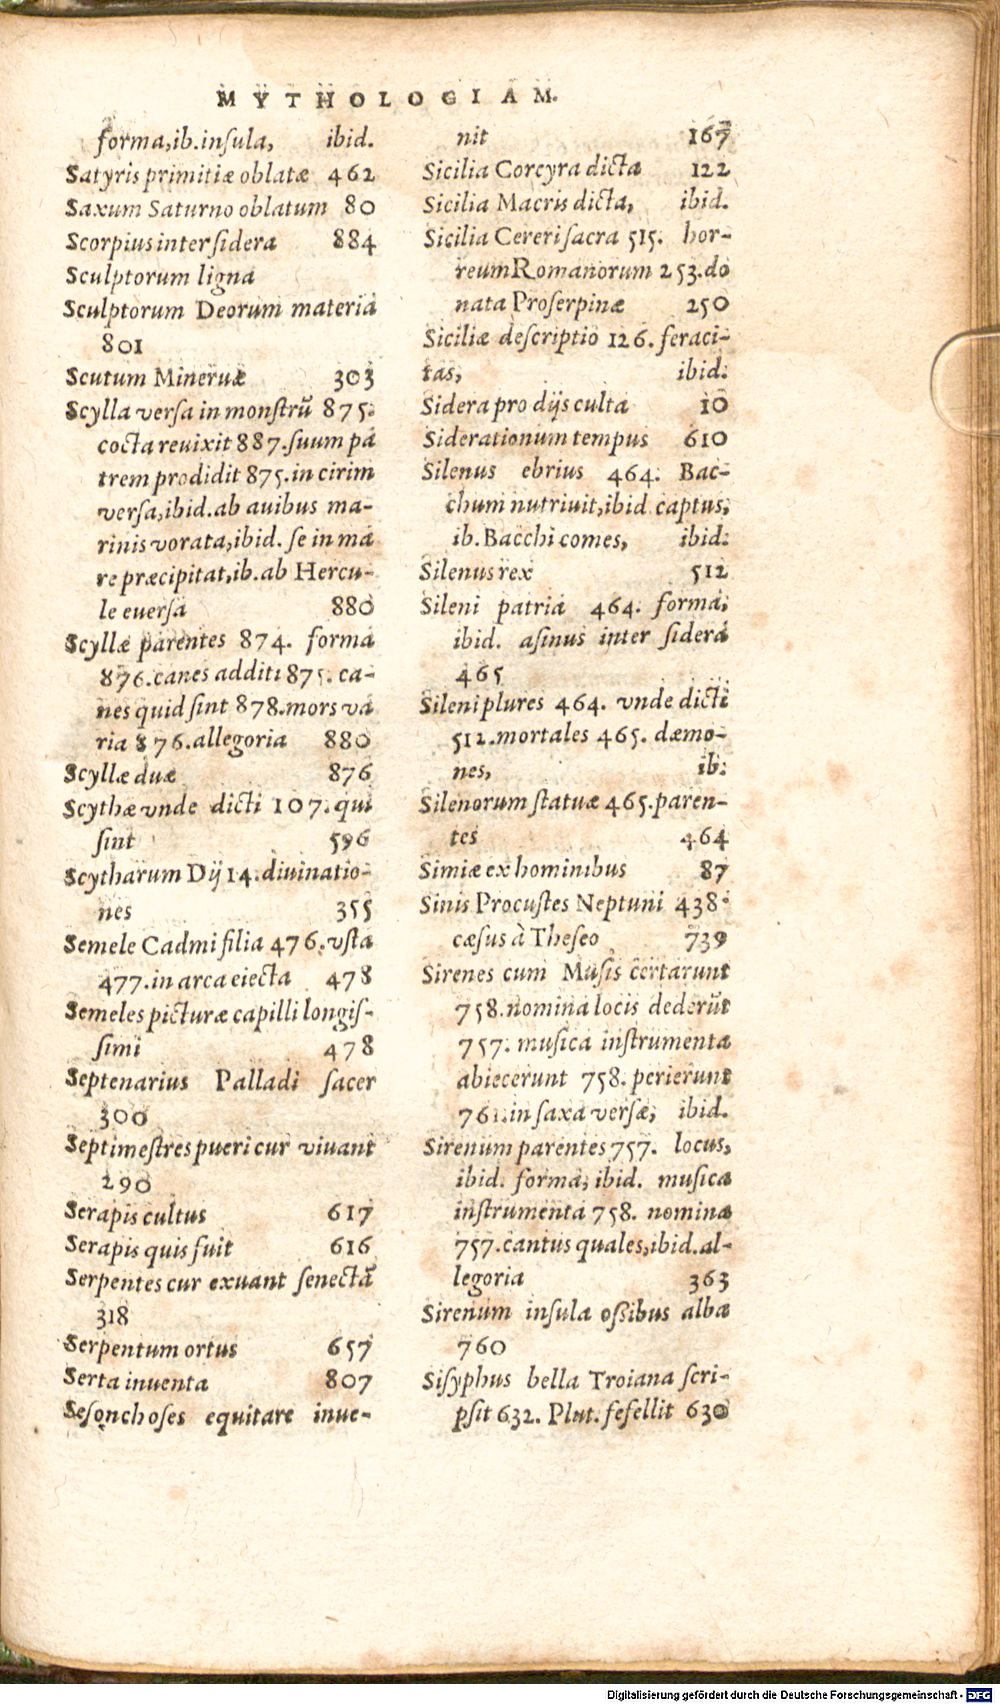 MYTHOLOGIAM.
forma, ib. insula, ibid.
Satyris primitiæ oblatæ 462
Saxum Saturno oblatum 80
Scorpius inter sidera 884
Sculptorum ligna
Sculptorum Deorum materia
801
Scutum Mineruæ 303
Scylla versa in monstrū 875.
cocta reuixit 887. suum pa
trem prodidit 875. in cirim
versa, ibid. ab auibus ma-
rinis vorata, ibid. se in ma
re præcipitat, ib. ab Hercu-
le euersa 880
Scyllæ parentes 874. forma
876. canes additi 875. ca-
nes quid sint 878. mors va
ria 876. allegoria 880
Scyllæ duæ 876
Scythæ vnde dicti 107. qui
sint 596
Scytharum Dij 14. diuinatio-
nes 355
Semele Cadmi filia 476. vsta
477. in arca eiecta 478
Semeles picturæ capilli longis-
simi 478
Septenarius Palladi sacer
300
Septimestres pueri cur viuant
290
Serapis cultus 617
Serapis quis fuit 616
Serpentes cur exuant senectā
318
Serpentum ortus 657
Serta inuenta 807
Sesonchoses equitare inue-
nit 167
Sicilia Corcyra dicta 122
Sicilia Macris dicta, ibid.
Sicilia Cereri sacra 515. hor-
reum Romanorum 253. do
nata Proserpinæ 250
Siciliæ descriptio 126. feraci-
tas, ibid.
Sidera pro dijs culta 10
Siderationum tempus 610
Silenus ebrius 464. Bac-
chum nutriuit, ibid captus,
ib. Bacchi comes, ibid.
Silenus rex 512
Sileni patria 464. forma,
ibid. asinus inter sidera
465
Sileni plures 464. vnde dicti
512. mortales 465. dæmo-
nes, ib.
Silenorum statuæ 465. paren-
tes 464
Simiæ ex hominibus 87
Sinis Procustes Neptuni 438.
cæsus à Theseo 739
Sirenes cum Musis certarunt
758. nomina locis dederūt
757. musica instrumenta
abiecerunt 758. perierunt
761. in saxa versæ, ibid.
Sirenum parentes 757. locus,
ibid. forma, ibid. musica
instrumenta 758. nomina
757. cantus quales, ibid. al-
legoria 363
Sirenum insula ossibus alba
760
Sisyphus bella Troiana scri-
psit 632. Plut. fefellit 630
Digitalisierung gefördert durch die Deutsche Forschungsgemeinschaft - DFG